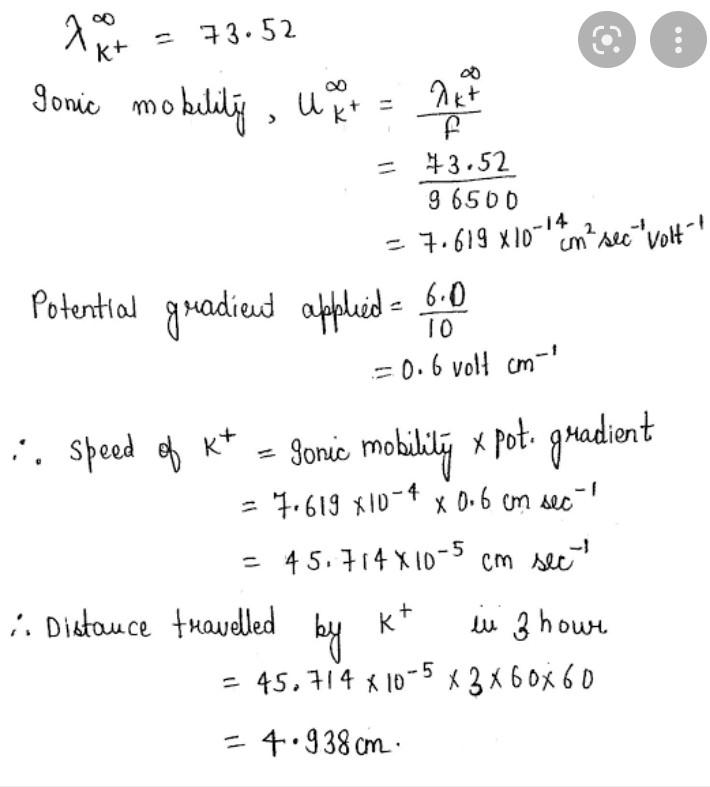 λ∞K+ = 73.52
Ionic mobility, U∞K+ = λ∞K+ / F
= 73.52 / 96500
= 7.619 ×10⁻¹⁴ cm² sec⁻¹ Volt⁻¹
Potential gradient applied = 6.0 / 10
= 0.6 volt cm⁻¹
∴ Speed of K⁺ = Ionic mobility × pot. gradient
= 7.619 ×10⁻⁴ × 0.6 cm sec⁻¹
= 45.714 × 10⁻⁵ cm sec⁻¹
∴ Distance travelled by K⁺ in 3 hour
= 45.714 × 10⁻⁵ × 3 × 60 × 60
= 4.938 cm.